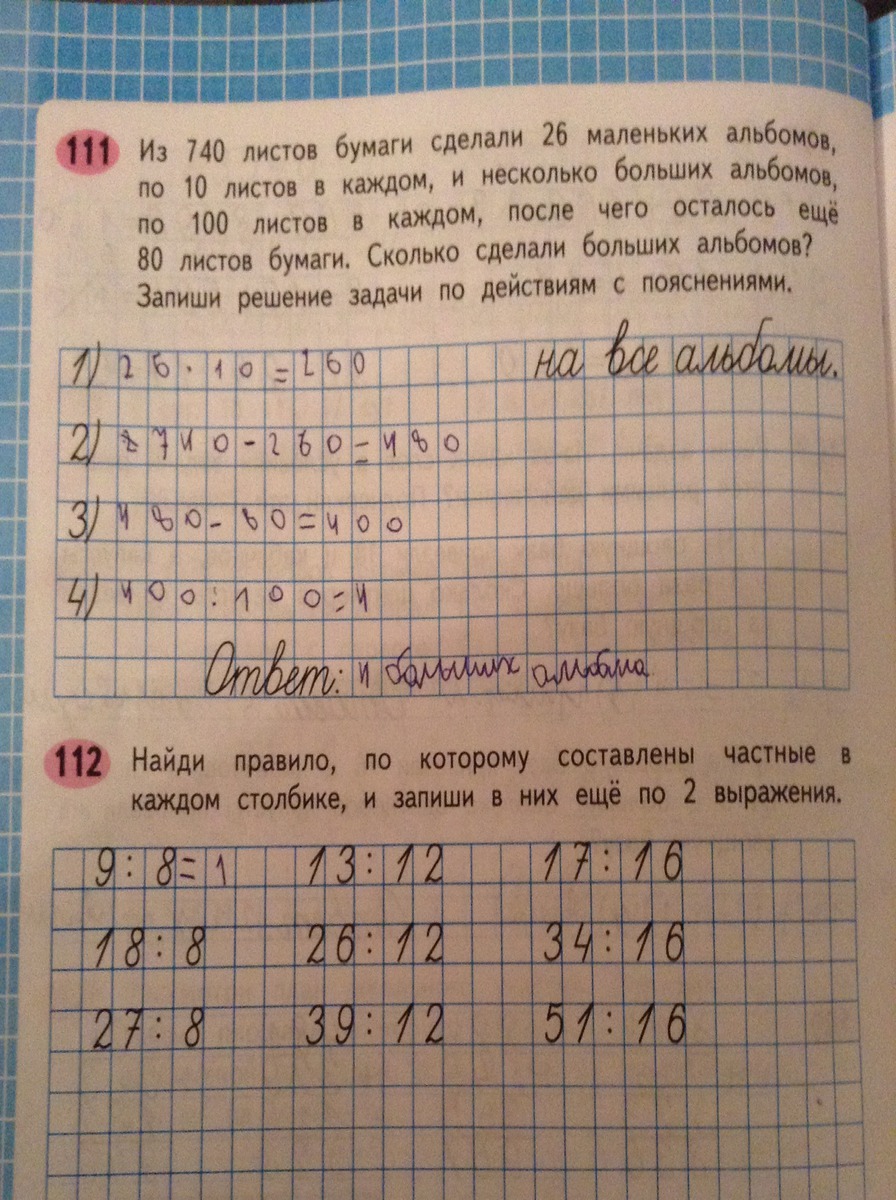 111 Из 740 листов бумаги сделали 26 маленьких альбомов,
по 10 листов в каждом, и несколько больших альбомов,
по 100 листов в каждом, после чего осталось ещё
80 листов бумаги. Сколько сделали больших альбомов?
Запиши решение задачи по действиям с пояснениями.
1) 26·10=260 на все альбомы.
2) 740-260=480
3) 480-80=400
4) 400:100=4
Ответ: 4 больших альбома
112 Найди правило, по которому составлены частные в
каждом столбике, и запиши в них ещё по 2 выражения.
9:8=1 13:12 17:16
18:8 26:12 34:16
27:8 39:12 51:16